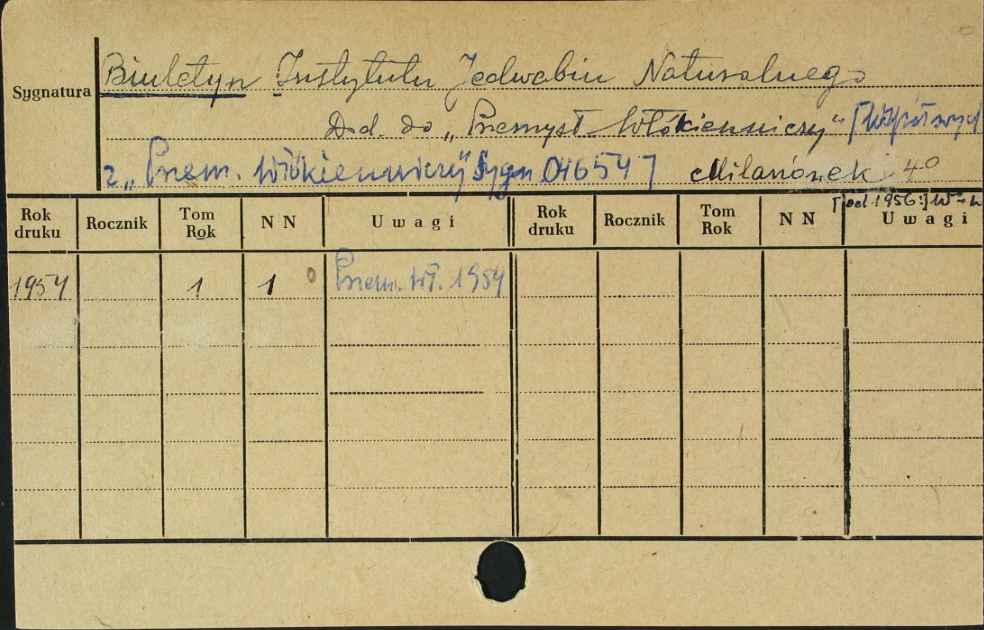 Sygnatura
Biuletyn Instytutu Jedwabiu Naturalnego
Dod. do „Przemysł Włókienniczy" [Współwyd
z „Przem. Włókienniczy" Sygn 046547] Milanówek 4°
[od 1956:] W-wa
Rok druku Rocznik Tom Rok N N Uwagi Rok druku Rocznik Tom Rok N N Uwagi
1954 1 1 0 Przem. Wł. 1954